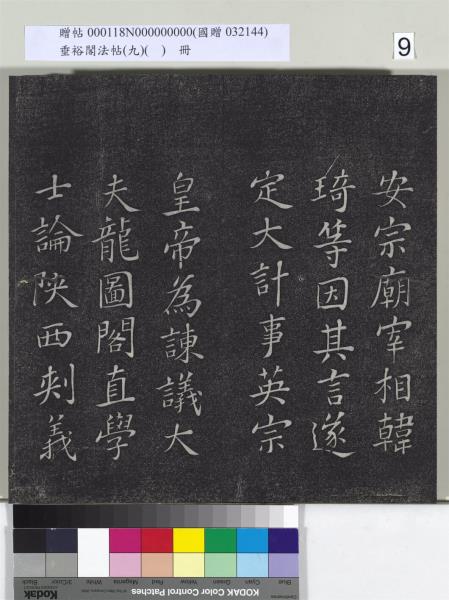 贈帖 000118N000000000(國贈 032144)
垂裕閣法帖(九)( ) 冊
9
安宗廟宰相韓
琦等因其言遂
定大計事英宗
皇帝為諫議大
夫龍圖閣直學
士論陝西刺義
Blue Cyan Green Yellow Red Magenta White 3/Color Black
Kodak
KODAK Color Control Patches